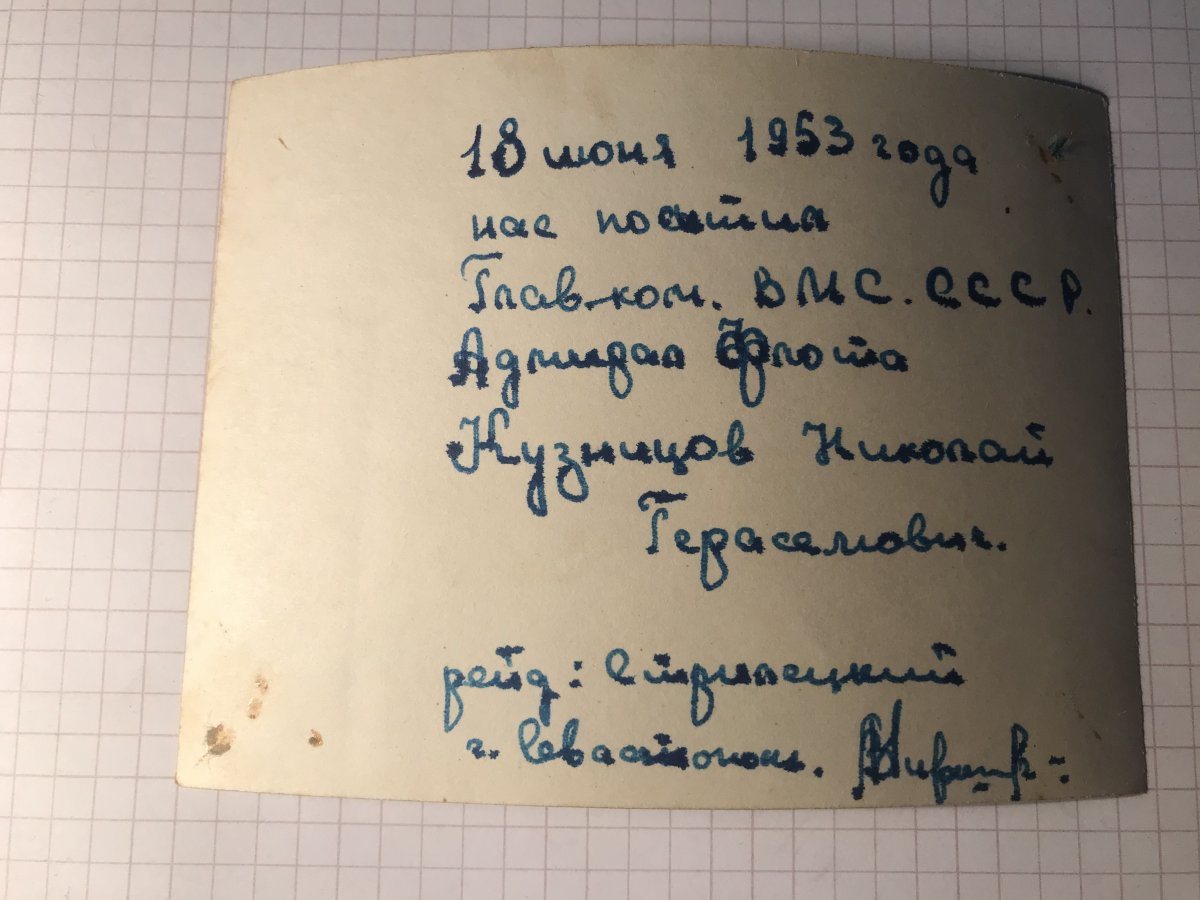 18 июня 1953 года
нас посетил
Глав.ком. ВМС. СССР.
Адмирал Флота
Кузницов Николай
Герасемович.
рейд: Стрилецкий
г. Севастополь.